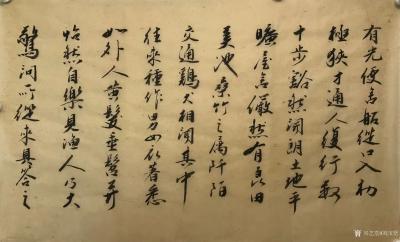 有光便舍船從口入初
極狹才通人復行數
十步豁然開朗土地平
曠屋舍儼然有良田
美池桑竹之屬阡陌
交通鷄犬相聞其中
往來種作男女衣著悉
如外人黃髮垂髫并
怡然自樂見漁人乃大
驚問所從來具答之